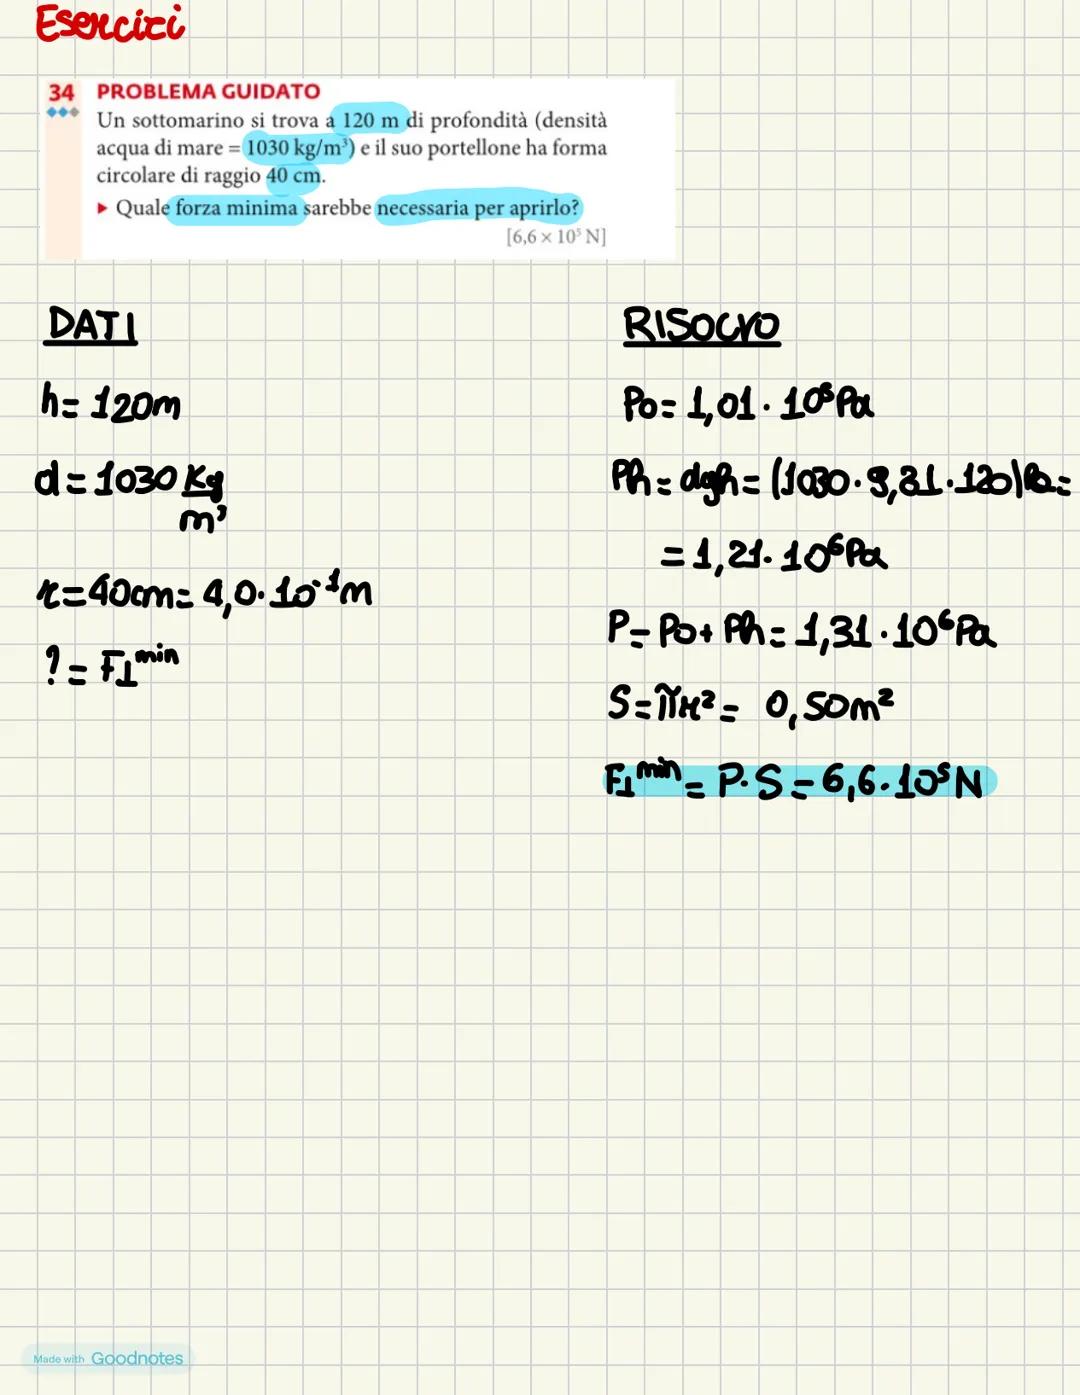 Esercizi
34 PROBLEMA GUIDATO
Un sottomarino si trova a 120 m di profondità (densità
acqua di mare = 1030 kg/m³) e il suo portellone ha forma
circolare di raggio 40 cm.
▸ Quale forza minima sarebbe necessaria per aprirlo?
[6,6 × 10⁵ N]
DATI
h = 120m
d = 1030 Kg/m³
r = 40cm = 4,0 · 10⁻¹m
? = F⊥ᵐⁱⁿ
RISOLVO
Po = 1,01 · 10⁵ Pa
Ph = dgh = (1030 · 9,81 · 120) Pa =
= 1,21 · 10⁶ Pa
P = Po + Ph = 1,31 · 10⁶ Pa
S = πr² = 0,50m²
F⊥ᵐⁱⁿ = P · S = 6,6 · 10⁵ N
Made with Goodnotes